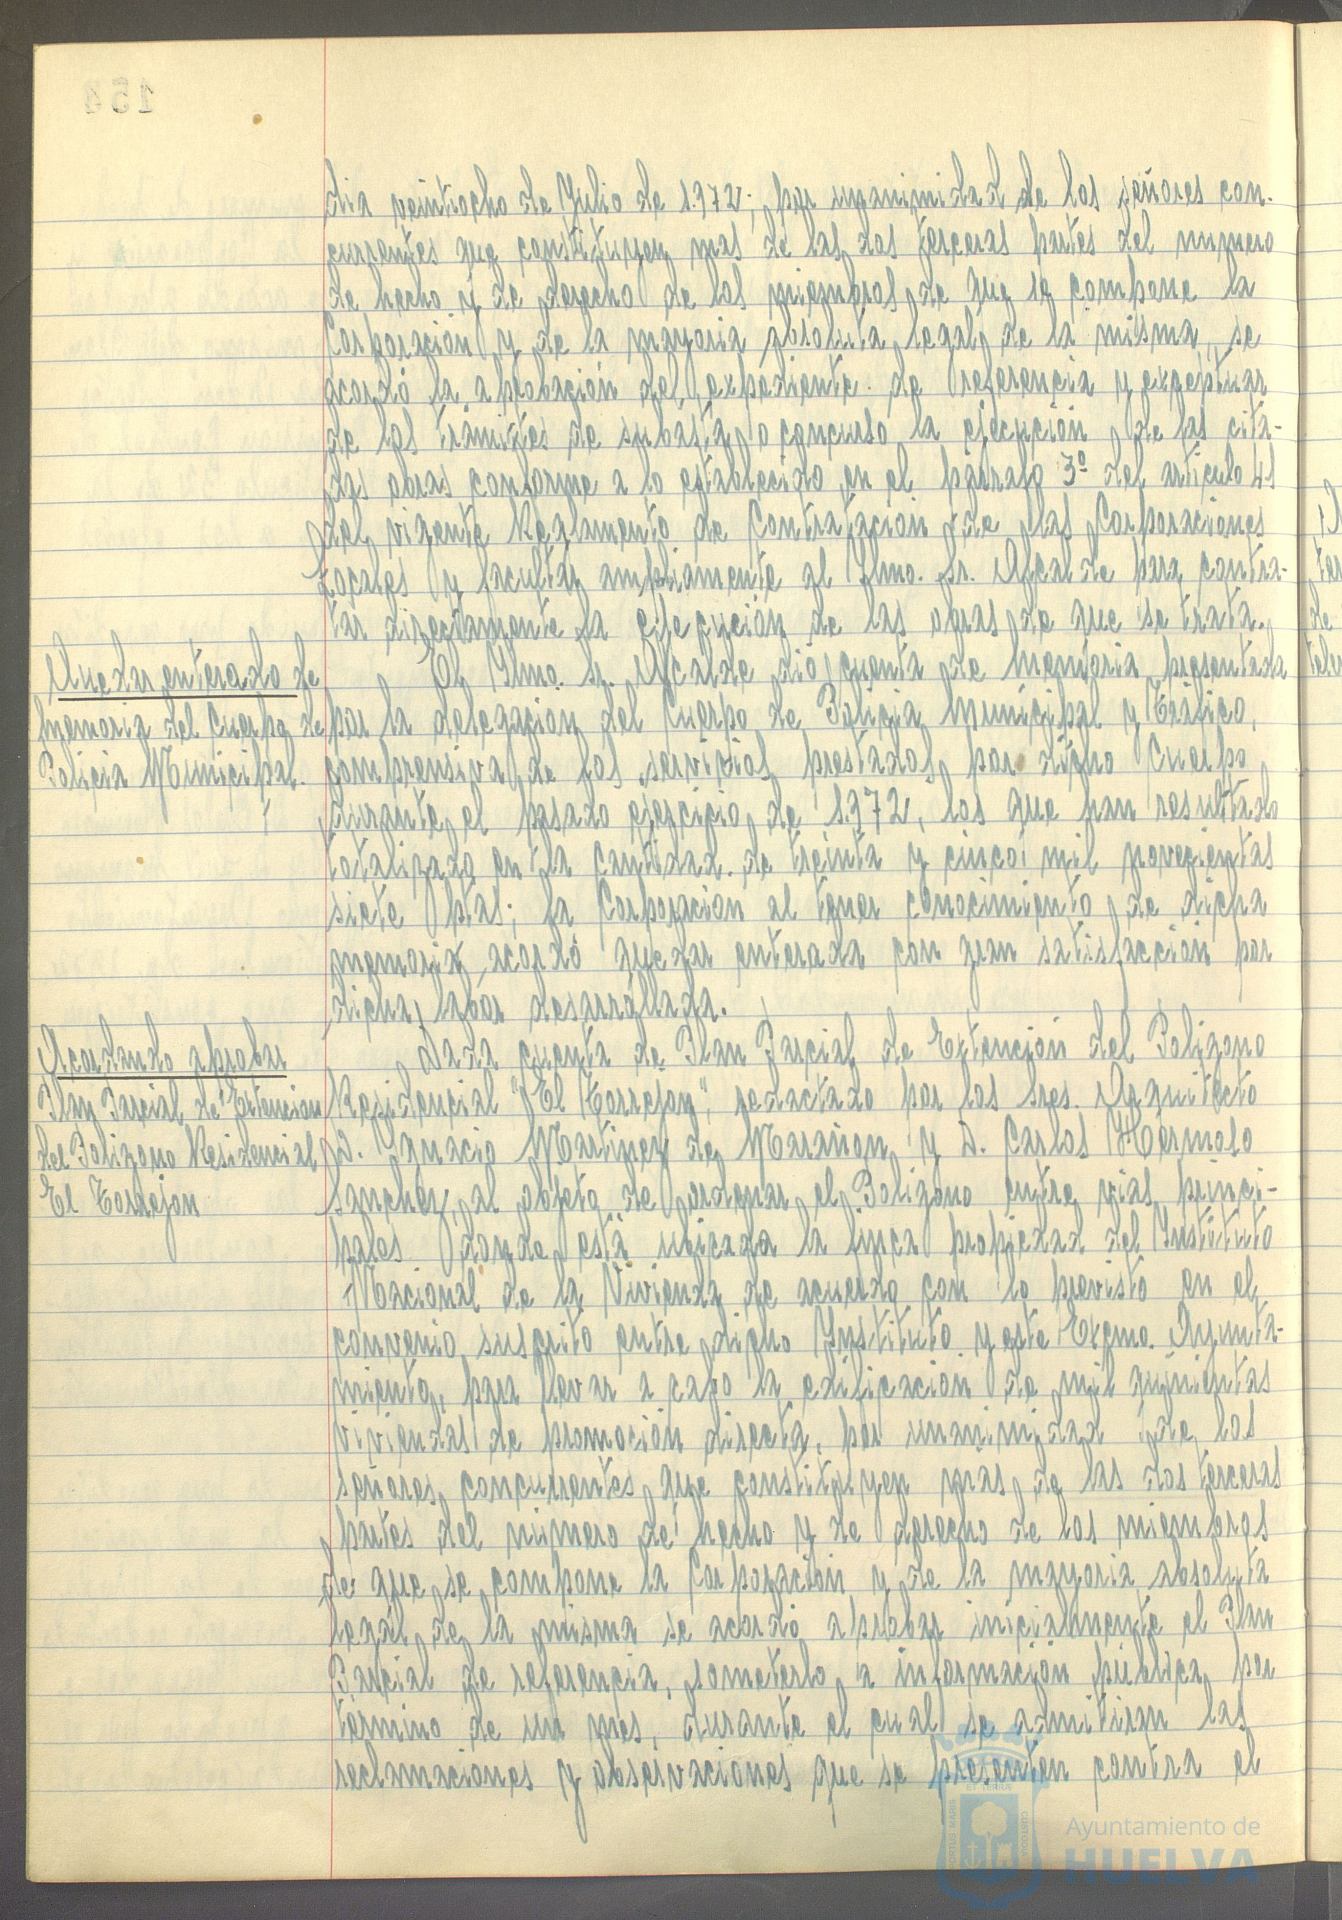 dia veintiocho de Julio de 1.972; por unanimidad de los señores con-
currentes que constituyen mas de las dos terceras partes del numero
de hecho y de derecho de los miembros de que se compone la
Corporación y de la mayoria absoluta legal de la misma, se
acordó la aprobación del expediente de referencia y exceptuar
de los trámites de subasta o concurso la ejecución de las cita-
das obras conforme a lo establecido en el párrafo 3º del articulo 41
del vigente Reglamento de Contratación de las Corporaciones
Locales y facultar ampliamente al Ylmo. Sr. Alcalde para contra-
tar directamente la ejecución de las obras de que se trata.
Quedar enterado de
memoria del Cuerpo de
Policia Municipal.
El Ylmo. Sr. Alcalde dió cuenta de memoria presentada
por la delegación del Cuerpo de Policia Municipal y Tráfico,
comprensiva de los servicios prestados por dicho Cuerpo
durante el pasado ejercicio de 1.972, los que han resultado
totalizado en la cantidad de treinta y cinco mil novecientas
siete ptas; la Corporación al tener conocimiento de dicha
memoria acordó quedar enterada con gran satisfacción por
dicha labor desarrollada.
Acordando aprobar
Plan Parcial de Extencion
del Poligono Residencial
El Torrejon
Dada cuenta de Plan Parcial de Extención del Poligono
Residencial "El Torrejon", redactado por los Sres. Arquitecto
D. Ignacio Martinez de Marañon y D. Carlos Hermoso
Sanchez, al objeto de ordenar el Poligono entre vias princi-
pales donde está ubicada la finca propiedad del Ynstituto
Nacional de la Vivienda de acuerdo con lo previsto en el
convenio suscrito entre dicho Ynstituto y este Excmo. Ayunta-
miento, para llevar a cabo la edificación de mil quinientas
viviendas de promoción directa, por unanimidad de los
señores concurrentes que constituyen más de las dos terceras
partes del número de hecho y de derecho de los miembros
de que se compone la Corporación y de la mayoria absoluta
legal de la misma se acordó aprobar inicialmente el Plan
Parcial de referencia, someterlo a información pública por
término de un mes, durante el cual se admitiran las
reclamaciones y observaciones que se presenten contra el
Ayuntamiento de
HUELVA